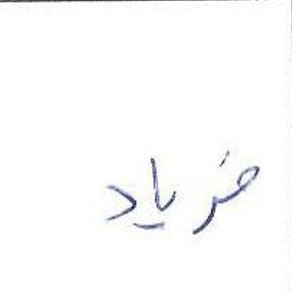 فریاد